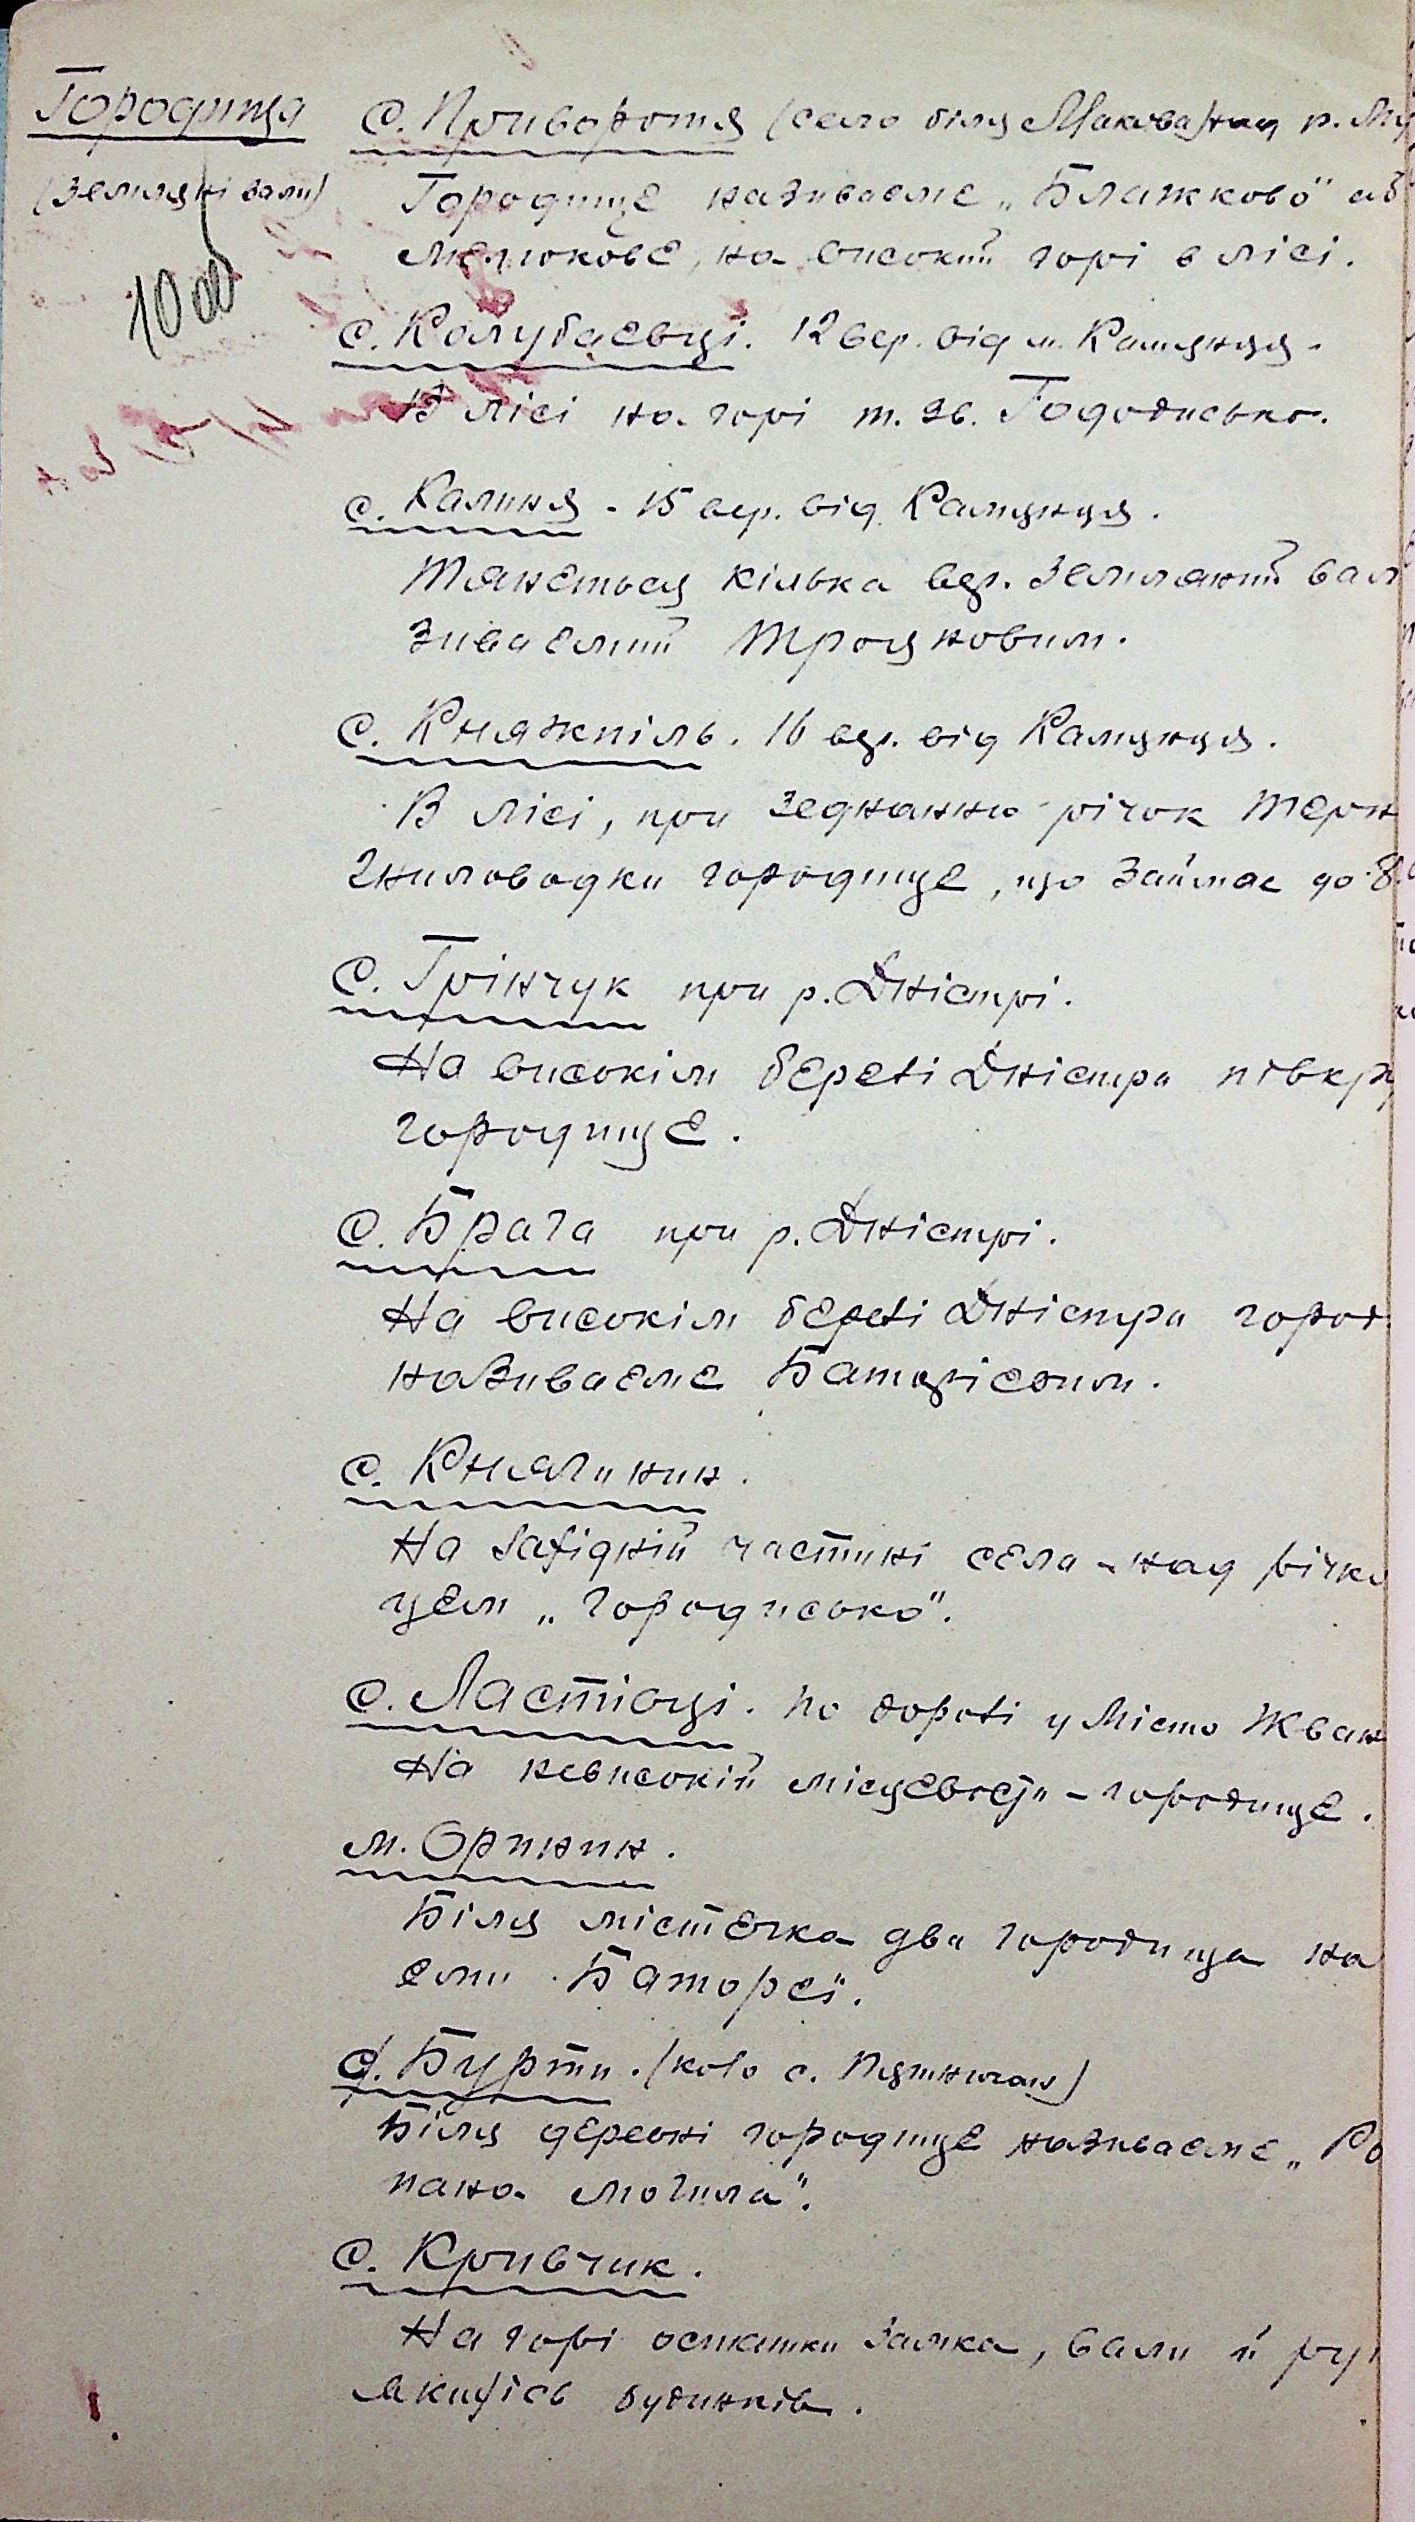 Городища
(Земляні вали)
1000
с. Привороття (село біля Макова) над р. Му
Городище називаєме „Блажково" аб
мелюкове, на високій горі в лісі.
с. Колубаєвці. 12 вер. від м. Камянця.
В лісі на горі т. зв. Гододисько.
с. Калиня - 15 вер. від Камянця.
Тянеться кілька вер. Земляний вал
зиваємий Трояновим.
с. Княжпіль. 16 вер. від Камянця.
В лісі, при зеднанню річок Терн
Гниловодки городище, що займає до 8
с. Грінчук при р. Дністрі.
На високім березі Дністра півкру
городище.
с. Брага при р. Дністрі.
На високім березі Дністра город
називаєме Батарієвим.
с. Княгинин.
На західній частині села - над річко
цем „городисько".
с. Ластівці. По дорозі у місто Жван
На невисокій місцевости - городище.
м. Оринин.
Біля містечка два городища на
єми Баторєї.
с. Бурти. (коло с. Пятничан)
Біля деревні городище називаєме „Ро
пана могила".
с. Кривчик.
На горі остатки замка, вали й руї
якихсь будинків.